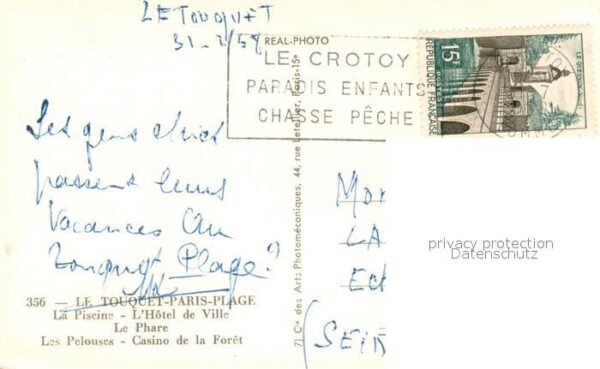 LE TOUQUET
31-7/58
REAL-PHOTO
LE CROTOY
PARADIS ENFANTS
CHASSE PÊCHE
15F
LE QUESNOY
RÉPUBLIQUE FRANÇAISE
POSTES
Les gens chics
passent leurs
Vacances au
Touquet Plage ?
356 — LE TOUQUET-PARIS-PLAGE
La Piscine - L'Hôtel de Ville
Le Phare
Les Pelouses - Casino de la Forêt
Cie des Arts Photomécaniques, 44, rue Letellier, Paris-15e
LA
(SEIN
privacy protection
Datenschutz